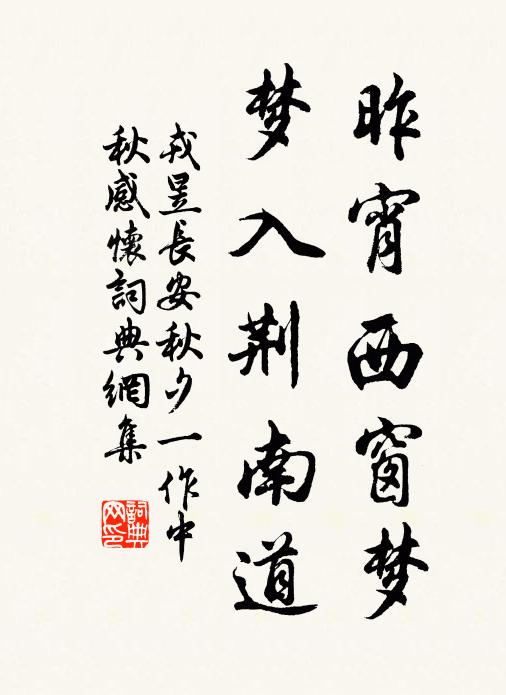 昨宵西窗梦
梦入荆南道
戎昱長安秋夕一作中
秋感懷詞典網集
詞典
网印